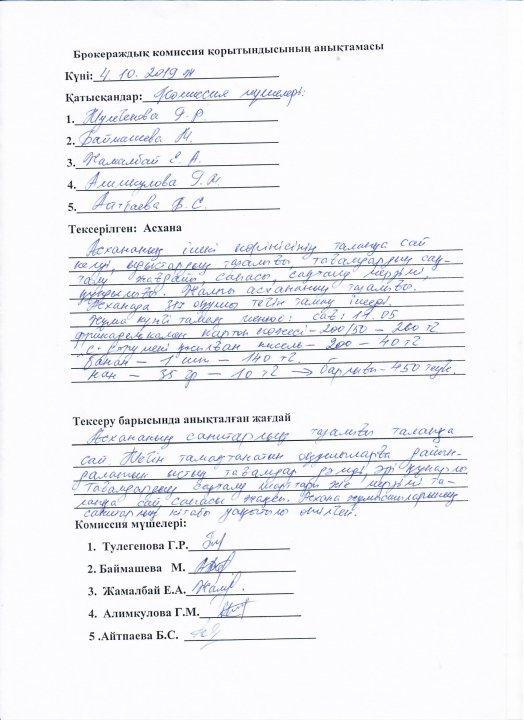 Брокераждық комиссия қорытындысының анықтамасы
Күні: 4 10. 2019 ж
Қатысқандар: Комиссия мүшелері:
1. Тулегенова Г. Р.
2. Баймашева М.
3. Жамалбай Е. А.
4. Алимкулова Г. М.
5. Айтпаева Б. С.
Тексерілген: Асхана
Асхананың ішкі көрінісінің талапқа сай
келуі, ыдыстардың тазалығы тағамдардың сақ-
талу жағдайы сапасы, сақталу мерзімі,
құндылығы. Жалпы асхананың тазалығы.
Асханада оқушы тегін тамақ ішеді.
Жұма күнгі тамақ менюі:
картоп көжесі - 200/50 - 260 тг
кисель - 200 - 40 тг
Банан - 1 шт - 140 тг
Нан - 35 гр - 10 тг → барлығы - 450 теңге
Тексеру барысында анықталған жағдай
Асхананың санитарлық тазалығы талапқа
сай. Тегін тамақтанатын оқушыларға дайын-
далатын ыстық тағамдар дәмді, әрі құнарлы
Тағамдардың сақталу шарттары мен мерзімі та-
лапқа сай сапасы жақсы. Асхана жұмысшыларының
санитарлық кітабы уақытылы
Комиссия мүшелері:
1. Тулегенова Г.Р.
2. Баймашева М.
3. Жамалбай Е.А.
4. Алимкулова Г.М.
5 .Айтпаева Б.С.